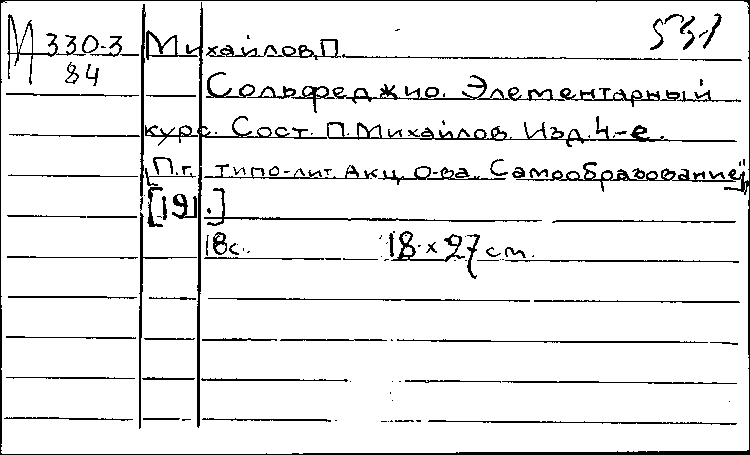 М 330-3 Михайлов, П. 531
84
Сольфеджио. Элементарный
курс. Сост. П. Михайлов. Изд. 4-е.
П.г. типо-лит. Акц. О-ва. Самообразование"
[191.]
18с. 18 x 27 cm.